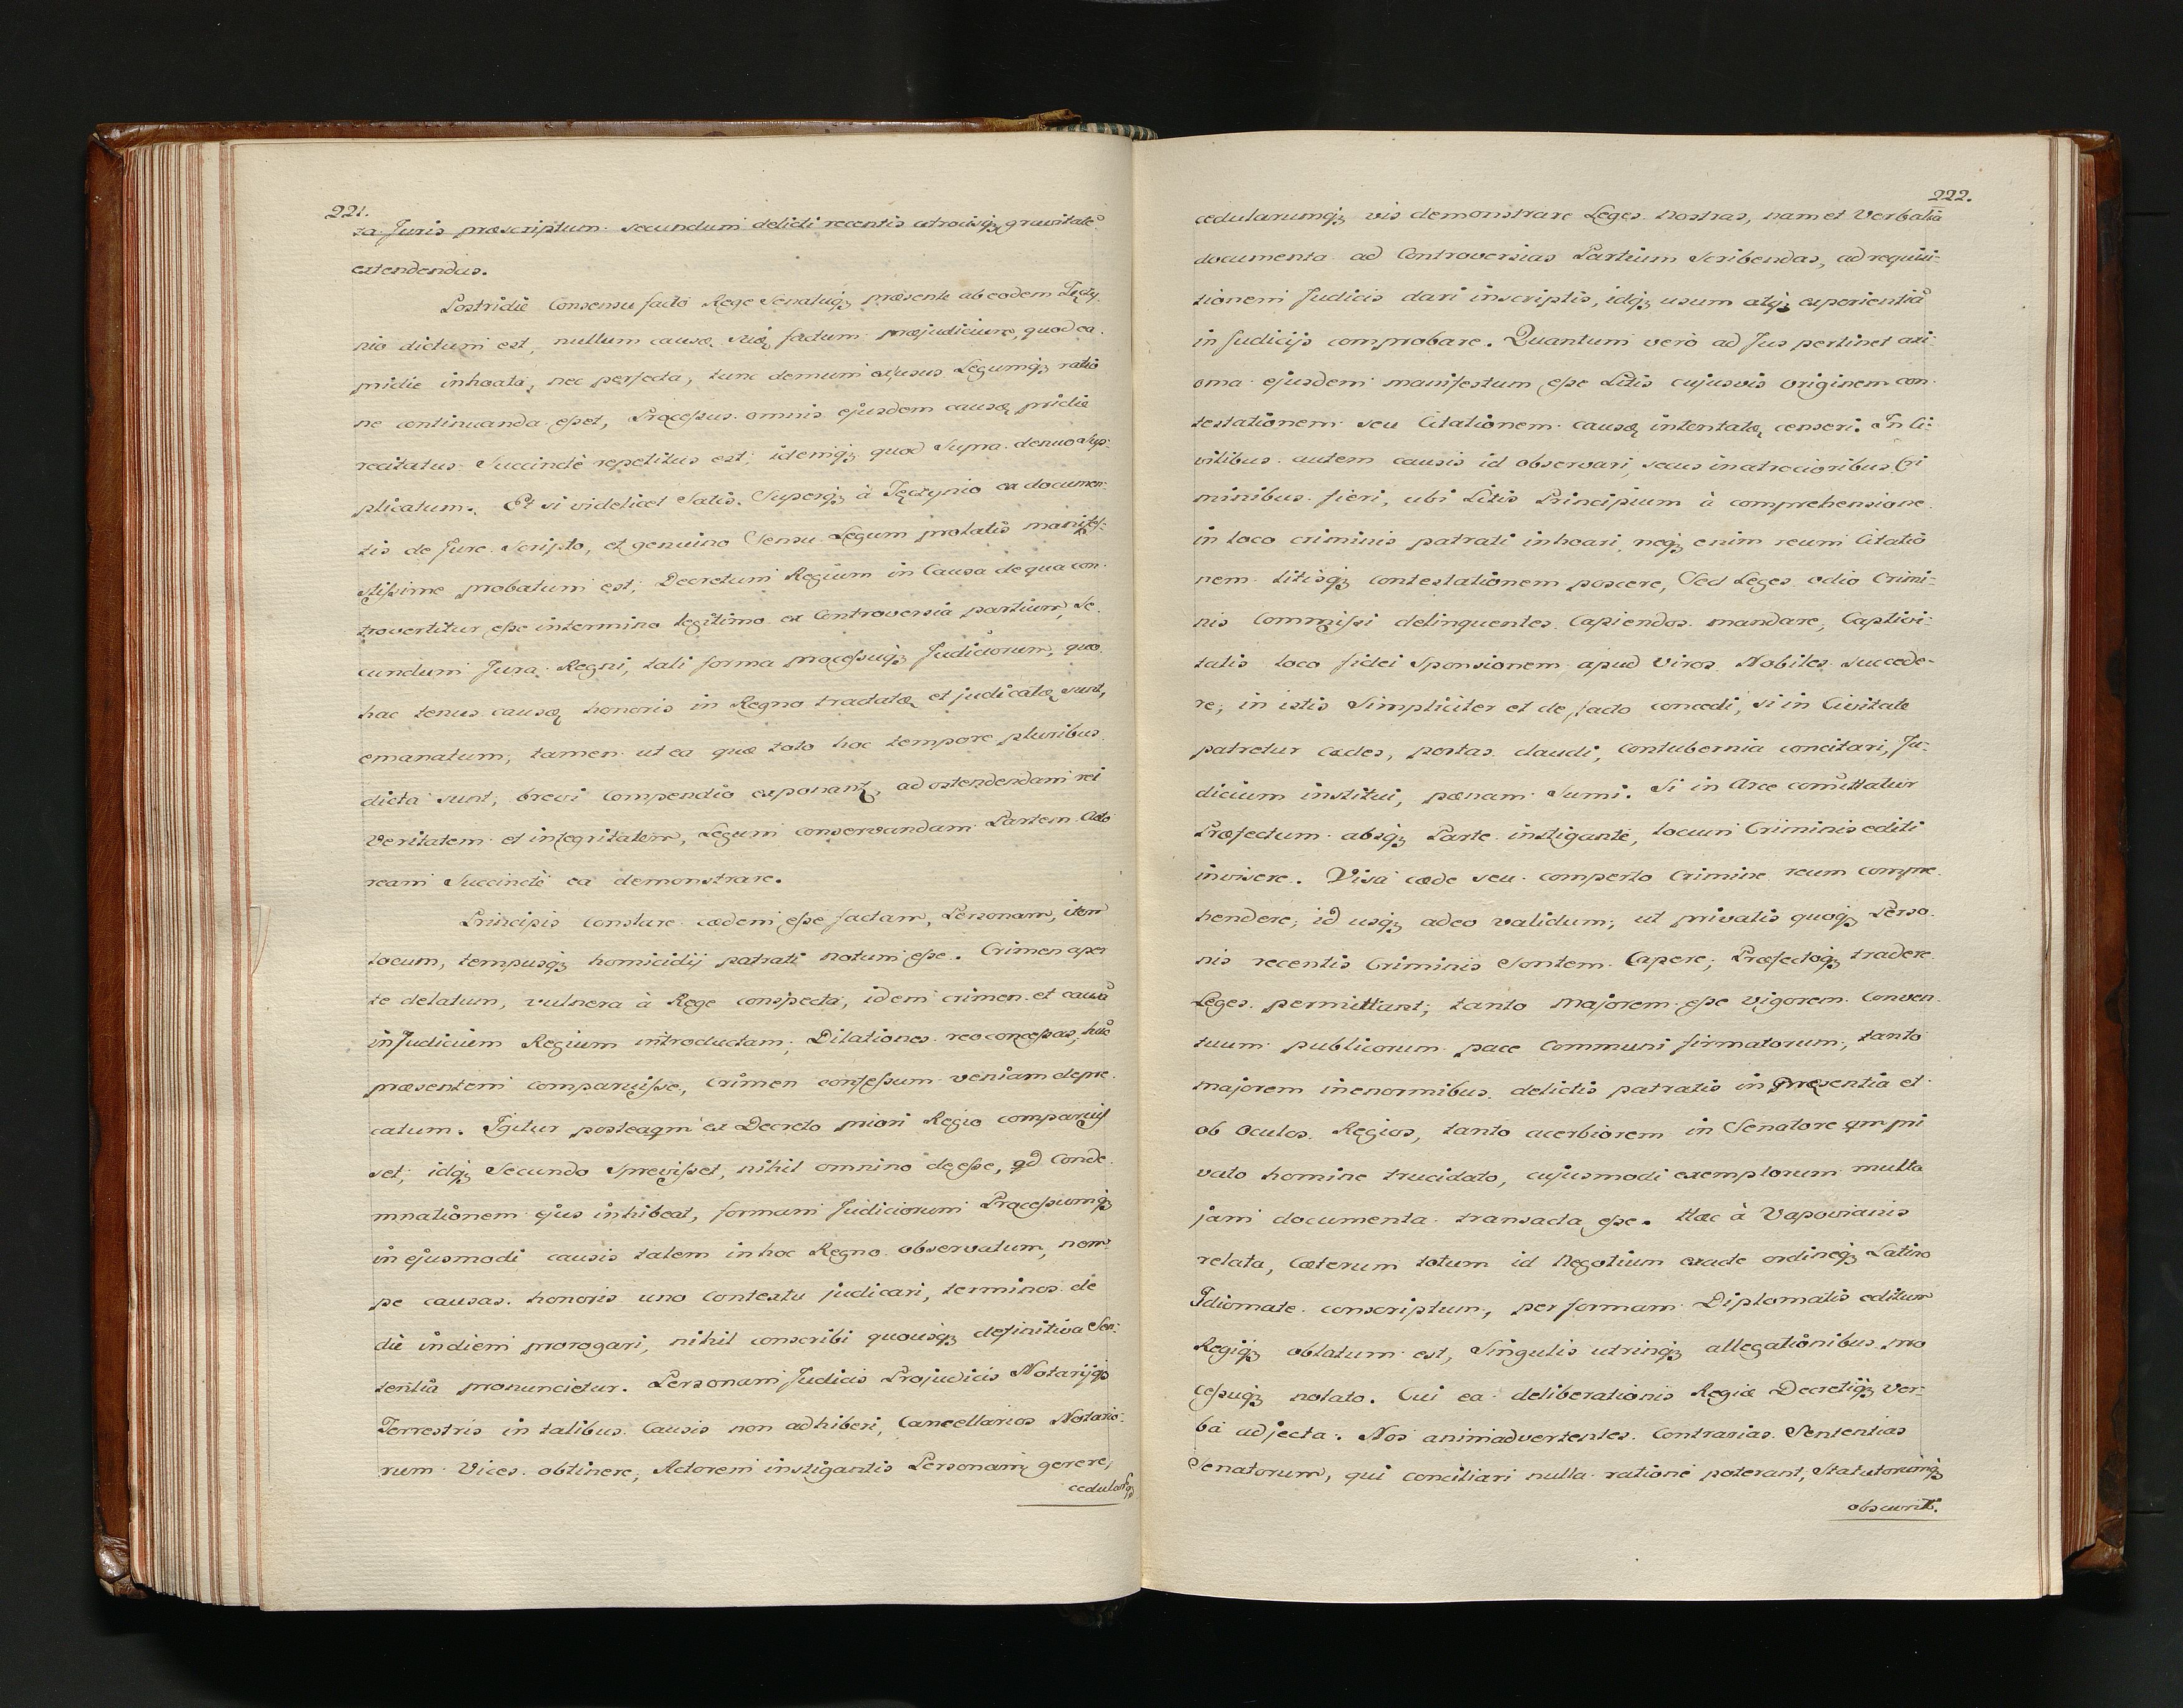 221.
ta Juris præscriptum secundum delicti recentis atrocisq; gravitatē
extendendas.
Postridie Consensu facto Rege Senatuq; præsente ab eodem Tęczy-
nio dictum est, nullum causæ suæ factum præjudicium, quod ea
pridie inhoata, nec perfecta, tunc demum ex usus Legumq; ratio
ne continuanda esset, Processus omnis ejusdem causæ pridie
recitatus Succinctè repetitus est; idemq; quod Supra denuo Sup-
plicatum. Et si videlicet Satis Superq; à Tęczynio ex documen-
tis de Jure Scripto, et genuino Sensu Legum prolatis manife-
stissime probatum est; Decretum Regium in Causa de qua con-
trovertitur esse in termino legitimo ex Controversia partium, Se-
cundum Jura Regni, tali forma processuq; Judiciorum, quo
hac tenus causæ honoris in Regno tractatæ et judicatæ sunt,
emanatum, tamen ut ea quæ toto hoc tempore pluribus
dicta sunt, brevi Compendio exponant, ad ostendendam rei
Veritatem et integritatem, Legum conservandam Partem Acto
ream Succinctè ea demonstrare.
Principis Constare cædem esse factam, Personam, item
locum, tempusq; homicidij patrati notum esse. Crimen aper
te delatum, vulnera à Rege conspecta, idem crimen et causā
in Judicium Regium introductam; Dilationes reo concessas, huc
præsentem comparuisse, Crimen confessum veniam depre-
catum. Igitur posteaqm ex Decreto priori Regio comparuis
set; idq; Secundo Sprevisset, nihil omnino deesse, qd Conde-
mnationem ejus inhibeat, formam Judiciorum Processumq;
in ejusmodi causis talem in hoc Regno observatum, nem-
pe causas honoris uno Contextu judicari, terminos de
die in diem prorogari, nihil conscribi quousq; definitiva Sen-
tentia pronuncietur. Personam Judicis Projudicis Notarijq;
Terrestris in talibus Causis non adhiberi, Cancellarios Notario-
rum Vices obtinere, Actorem instigantis Personam gerere,
cedularq;
222.
cedularumq; vis demonstrare Leges nostras, nam et Verbalia
documenta ad Controversias Partium Scribendas, ad requisi-
tionem Judicis dari inscriptis, idq; usum atq; experientiā
in Judicijs comprobare. Quantum verò ad Jus pertinet axi-
oma ejusdem manifestum esse Litis cujusvis originem con-
testationem seu Citationem causæ intentatæ censeri. In Ci-
vilibus autem causis id observari, secus in atrocioribus Cri
minibus fieri, ubi Litis Principium à comprehensione
in loco criminis patrati inhoari, neq; enim reum Citatio
nem litisq; contestationem poscere, Sed Leges odio Crimi-
nis Commissi delinquentes Capiendos mandare, Captivi-
tatis loco fidei Sponsionem apud Viros Nobiles succede-
re; in istis Simpliciter et de facto concedi, si in Civitate
patretur cædes, portas claudi, Contubernia concitari, Ju-
dicium institui, pænam Sumi. Si in Arce comittatur
Præfectum absq; Parte instigante, locum Criminis editi
invisere. Visà cæde seu comperto Crimine reum compre
hendere; id usq; adeo validum, ut privatis quoq; Perso-
nis recentis Criminis Sontem Capere; Præfectoq; tradere
Leges permittant; tanto Majorem esse vigorem Conven-
tuum publicorum pace Communi firmatorum, tanto
majorem in enormibus delictis patratis in præsentia et
ob Oculos Regios, tanto acerbiorem in Senatore qm pri
vato homine trucidato, cujusmodi exemplorum multa
jam documenta transacta esse. Hæc à Vapovianis
relata, Cæterum totum id Negotium exacte ordineq; Latino
Idiomate conscriptum, per formam Diplomatis editum
Regiq; oblatum est, Singulis utrinq; allegationibus pro
cessuq; notato. Cui ea deliberationis Regiæ Decretiq; ver-
ba adjecta. Nos animadvertentes Contrarias Sententias
Senatorum, qui conciliari nulla ratione poterant, Statutorumq;
obscurit.